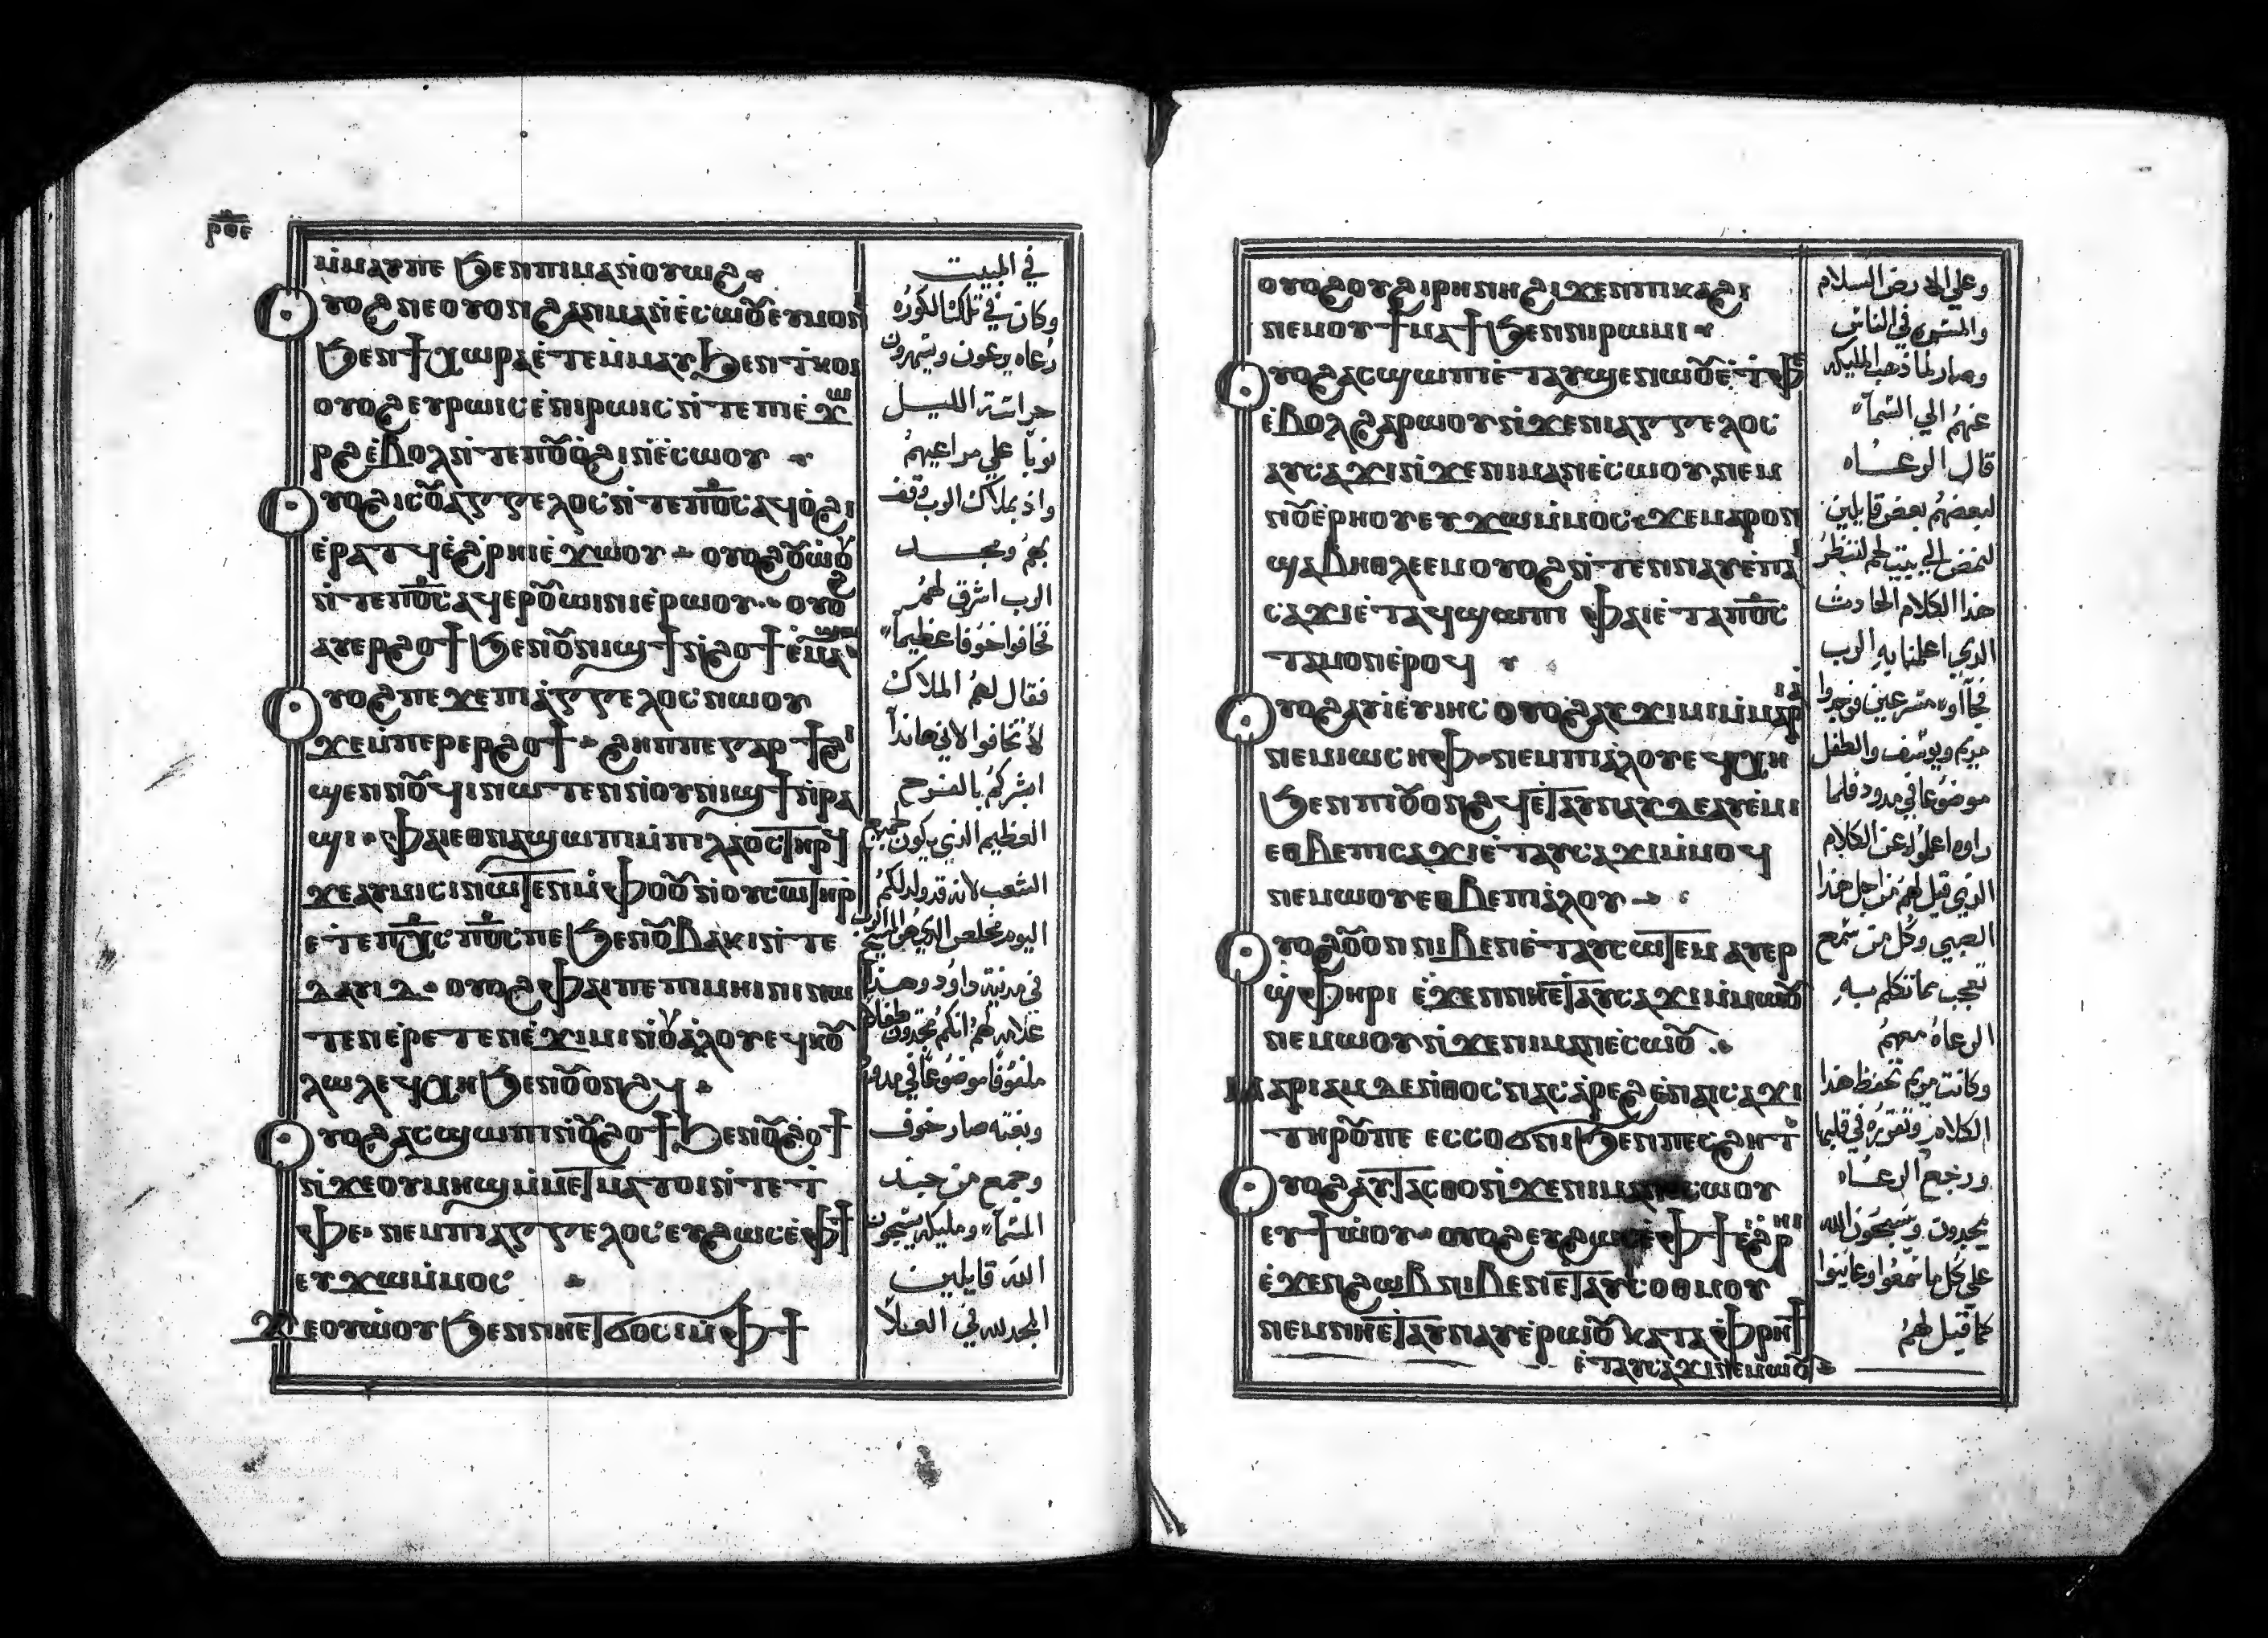 ⲣⲟⲉ
ⲙ̀ⲙⲁⲩⲡⲉ ϧⲉⲛⲡⲓⲙⲁⲛ̀ⲟⲩⲱϩ
Ⲟⲩⲟϩ ⲛⲉⲟⲩⲟⲛϩⲁⲛⲙⲁⲛⲉ̀ⲥⲱⲟⲩⲉⲩⲙⲟⲛⲓ
ϧⲉⲛϯⲭⲱⲣⲁⲉ̀ⲧⲉⲙ̀ⲙⲁⲩ ϧⲉⲛⲧ̀ⲕⲟⲓ
ⲟⲩⲟϩ ⲉⲩⲣⲱⲓⲥⲉ̀ⲛⲓⲣⲱⲓⲥⲛ̀ⲧⲉⲡⲓⲉ̀ϫⲱ
ⲣϩ ⲉ̀ⲃⲟⲗⲛ̀ⲧⲉⲡⲟⲩⲟ̀ϩⲓⲛ̀ⲉ̀ⲥⲱⲟⲩ
Ⲟⲩⲟϩ ⲓⲥⲟⲩⲁⲅⲅⲉⲗⲟⲥⲛ̀ⲧⲉⲡϭⲥⲁϥⲟ̀ϩⲓ
ⲉ̀ⲣⲁⲧϥⲉ̀ϩⲣⲏⲓⲉ̀ϫⲱⲟⲩ ⲟⲩⲟϩ ⲟⲩⲱ̀ⲟⲩ
ⲛ̀ⲧⲉⲡϭⲥⲁϥⲉⲣⲟⲩⲱⲓⲛⲓⲉ̀ⲣⲱⲟⲩ ⲟⲩⲟϩ
ⲁⲩⲉⲣϩⲟϯ ϧⲉⲛⲟⲩⲛⲓϣϯⲛ̀ϩⲟϯ ⲉ̀ⲙⲁϣⲱ
Ⲟⲩⲟϩ ⲡⲉϫⲉⲡⲓⲁ̀ⲅⲅⲉⲗⲟⲥⲛⲱⲟⲩ
ϫⲉⲙ̀ⲡⲉⲣⲉⲣϩⲟϯ ϩⲏⲡⲡⲉⲅⲁⲣ ϯϩⲓ
ϣⲉⲛⲛⲟⲩϥⲓⲛⲱⲧⲉⲛⲛ̀ⲟⲩⲛⲓϣϯⲛ̀ⲣⲁ
ϣⲓ ⲫⲁⲓⲉⲑⲛⲁϣⲱⲡⲓⲙ̀ⲡⲓⲗⲁⲟⲥⲧⲏⲣϥ
ϫⲉⲁⲩⲙⲓⲥⲓⲛⲱⲧⲉⲛⲙ̀ⲫⲟⲟⲩⲛ̀ⲟⲩⲥⲱⲧⲏⲣ
ⲉ̀ⲧⲉⲡⲭⲥⲡϭⲥⲡⲉ ϧⲉⲛⲟⲩⲃⲁⲕⲓⲛ̀ⲧⲉ
ⲇⲁⲩⲓⲇ ⲟⲩⲟϩ ⲫⲁⲓⲡⲉⲡⲓⲙⲏⲓⲛⲓⲛⲱ
ⲧⲉⲛⲉ̀ⲣⲉⲧⲉⲛⲉ̀ϫⲓⲙⲓⲛ̀ⲟⲩⲁ̀ⲗⲟⲩⲉϥⲕⲟⲩ
ⲗⲱⲗⲉϥⲭⲏ ϧⲉⲛⲟⲩⲟⲛϩϥ
Ⲟⲩⲟϩ ⲁⲥϣⲱⲡⲓⲛ̀ⲟⲩϩⲟϯ ϧⲉⲛⲟⲩϩⲟϯ
ⲛ̀ϫⲉⲟⲩⲙⲏϣⲙ̀ⲙⲉⲧⲙⲁⲧⲟⲓⲛ̀ⲧⲉⲧ̀
ⲫⲉ ⲛⲉⲙⲡⲓⲁⲅⲅⲉⲗⲟⲥⲉⲩϩⲱⲥⲉ̀ⲫϯ
ⲉⲩϫⲱⲙ̀ⲙⲟⲥ
ϫⲉⲟⲩⲱ̀ⲟⲩ ϧⲉⲛⲛⲏⲉⲧϭⲟⲥⲓⲙ̀ⲫϯ
في المبيت
وكان في تلك الكوره
رعاه يرعون ويسهرون
حراسة الليل
نوبا علي مراعيهم
واذ بملاك الرب وقف
بهم ومجد
الرب اشرق لهم
فخافوا خوفا عظيما
فقال لهم الملاك
لا تخافوا لاني هاندا
ابشركم بالفرح
العظيم الذي يكون لجميع
الشعب لانه قد ولد لكم
اليوم مخلص الذي هو المسيح الرب
في مدينة داود وهذا
علامه لهم انكم تجدون طفلا
ملفوفا موضوعا في مدود
وبغته صار خوف
وجمع من جند
السما وملیكه يسبحون
الله قايلين
المجد لله في العلا
ⲟⲩⲟϩ ⲟⲩϩⲓⲣⲏⲛⲏϩⲓϫⲉⲛⲡⲓⲕⲁϩⲓ
ⲛⲉⲙⲟⲩϯⲙⲁϯ ϧⲉⲛⲛⲓⲣⲱⲙⲓ
Ⲟⲩⲟϩ ⲁⲥϣⲱⲡⲓⲉ̀ⲧⲁⲩϣⲉⲛⲱⲟⲩⲉ̀ⲧ̀ⲫⲉ
ⲉ̀ⲃⲟⲗϩⲁⲣⲱⲟⲩⲛ̀ϫⲉⲛⲓⲁⲅⲅⲉⲗⲟⲥ
ⲁⲩⲥⲁϫⲓⲛ̀ϫⲉⲛⲓⲙⲁⲛⲉ̀ⲥⲱⲟⲩ ⲛⲉⲙ
ⲛⲟⲩⲉ̀ⲣⲏⲟⲩⲉⲩϫⲱⲙ̀ⲙⲟⲥ ϫⲉⲙⲁⲣⲟⲛ
ϣⲁⲃⲏⲑⲗⲉⲉⲙ ⲟⲩⲟϩ ⲛ̀ⲧⲉⲛⲛⲁⲩⲉ̀ⲡⲁⲓ
ⲥⲁϫⲓⲉ̀ⲧⲁϥϣⲱⲡⲓ ⲫⲁⲓⲉ̀ⲧⲁⲡϭⲥ
ⲧⲁⲙⲟⲛⲉ̀ⲣⲟϥ
Ⲟⲩⲟϩ ⲁⲩⲓⲉⲩⲓⲏⲥ ⲟⲩⲟϩ ⲁⲩϫⲓⲙⲓⲙ̀ⲙⲁⲣⲓⲁ
ⲛⲉⲙⲓⲱⲥⲏⲫ ⲛⲉⲙⲡⲓⲁ̀ⲗⲟⲩⲉϥⲭⲏ
ϧⲉⲛⲡⲓⲟⲩⲟⲛϩϥ ⲉ̀ⲧⲁⲩⲛⲁⲩⲇⲉⲁⲩⲉ̀ⲙⲓ
ⲉⲑⲃⲉⲡⲓⲥⲁϫⲓⲉ̀ⲧⲁⲩⲥⲁϫⲓⲙ̀ⲙⲟϥ
ⲛⲉⲙⲱⲟⲩⲉⲑⲃⲉⲡⲓⲁ̀ⲗⲟⲩ
Ⲟⲩⲟϩ ⲟⲩⲟⲛⲛⲓⲃⲉⲛⲉ̀ⲧⲁⲩⲥⲱⲧⲉⲙ ⲁⲩⲉⲣ
ϣ̀ⲫⲏⲣⲓ ⲉ̀ϫⲉⲛⲛⲏⲉⲧⲁⲩⲥⲁϫⲓⲙ̀ⲙⲱⲟⲩ
ⲛⲉⲙⲱⲟⲩⲛ̀ϫⲉⲛⲓⲙⲁⲛⲉ̀ⲥⲱⲟⲩ
Ⲙⲁⲣⲓⲁⲙ ⲇⲉⲛ̀ⲑⲟⲥⲛⲁⲥⲁ̀ⲣⲉϩ ⲉ̀ⲛⲁⲓⲥⲁϫⲓ
ⲧⲏⲣⲟⲩⲡⲉ ⲉⲥⲥⲟϭⲛⲓ ϧⲉⲛⲡⲉⲥϩⲏⲧ
Ⲟⲩⲟϩ ⲁⲩⲧⲁⲥⲑⲟⲛ̀ϫⲉⲛⲓⲙⲁⲛⲉⲥⲱⲟⲩ
ⲉⲩϯⲱ̀ⲟⲩ ⲟⲩⲟϩ ⲉⲩϩⲱⲥⲉ̀ⲫϯ ⲉ̀ϩ̀ⲣⲏⲓ
ⲉ̀ϫⲉⲛϩⲱⲃⲛⲓⲃⲉⲛⲉⲧⲁⲩⲥⲟⲑⲙⲟⲩ
ⲛⲉⲙⲛⲏⲉⲧⲁⲩⲛⲁⲩⲉ̀ⲣⲱⲟⲩ ⲕⲁⲧⲁⲫⲣⲏϯ
ⲉ̀ⲧⲁⲩⲥⲁϫⲓⲛⲉⲙⲱⲟⲩ
وعلي الارض السلام
والمسره في الناس
وصار لما ذهب المليكه
عنهم الي السما
قال الرعاه
لبعضهم بعض قايلين
لنمض الي بيت لحم لننظر
هذا الكلام الحادث
الذي اعلمنا به الرب
فجاآوا مسرعين فوجدوا
مريم ويوسف والطفل
موضوعا في مدود فلما
راوه اعلموا عن الكلام
الذي قيل لهم من اجل هذا
الصبي وكل من سمع
تعجب مما تكلم به
الرعاه معهم
وكانت مريم تحفظ هذا
الكلام وتقرره في قلبها
ورجع الرعاه
يمجدون ويسبحون الله
علي كل ما سمعوا وعاينوا
كما قيل لهم